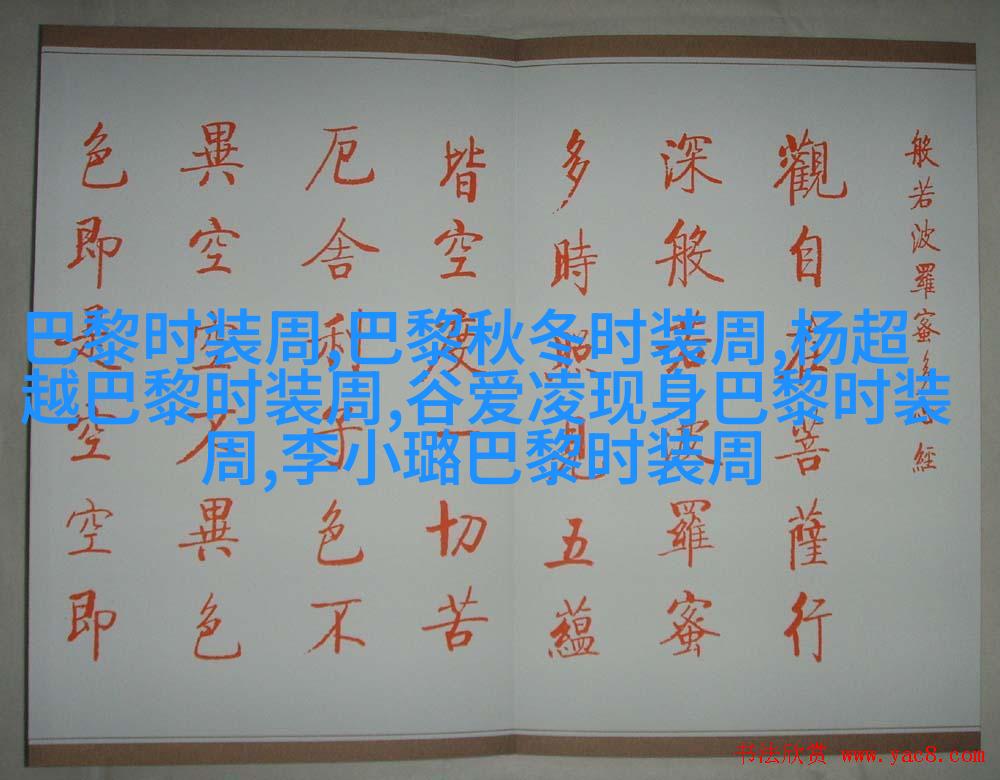 般若波羅蜜多心經
觀自在菩薩行
深般若波羅蜜
多時照見五蘊
皆空度一切苦
厄舍利子色不
異空空不異色
色即是空空即
巴黎时装周,巴黎秋冬时装周,杨超
越巴黎时装周,谷爱凌现身巴黎时装
周,李小璐巴黎时装周
书法欣赏 www.yac8.com